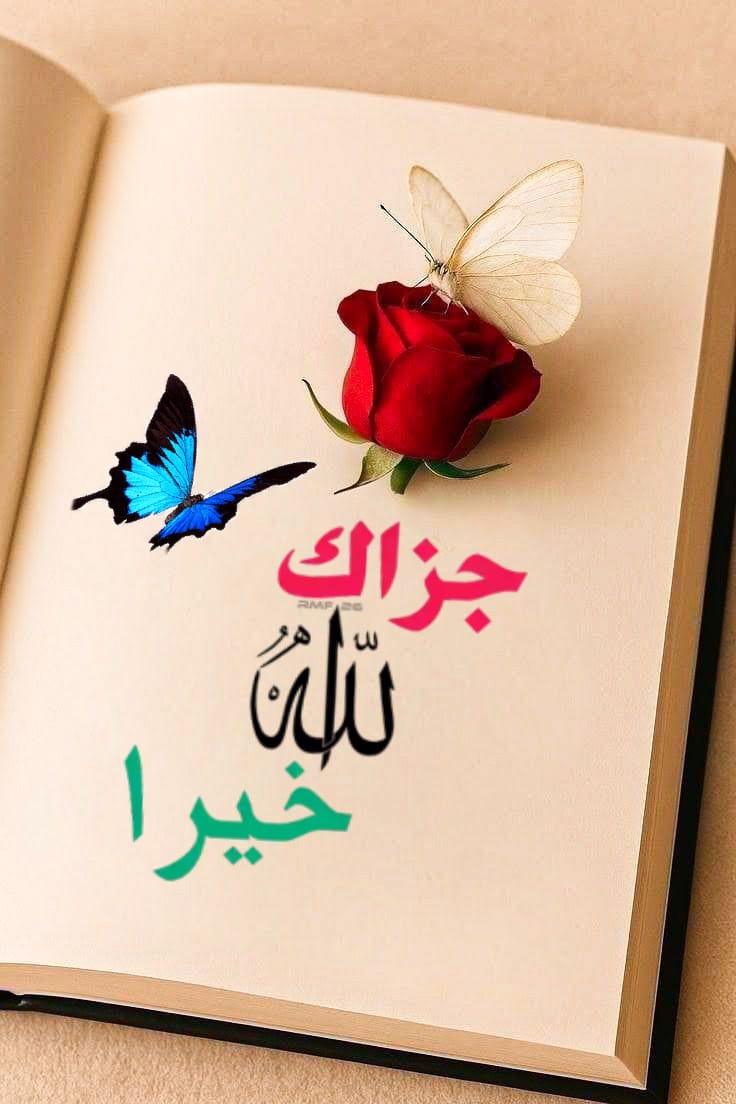 جزاك
RMF 26
الله
خيرا